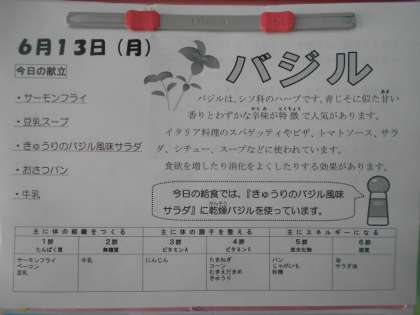 6月13日（月）
今日の献立
・サーモンフライ
・豆乳スープ
・きゅうりのバジル風味サラダ
・おさつパン
・牛乳
バジル
バジルは、シソ科のハーブです。青じそに似た甘い
香りとわずかな辛味が特徴で人気があります。
イタリア料理のスパゲッティやピザ、トマトソース、サラ
ダ、シチュー、スープなどに使われています。
食欲を増したり消化をよくしたりする効果があります。
今日の給食では、『きゅうりのバジル風味
サラダ』に乾燥バジルを使っています。
主に体の組織をつくる 主に体の調子を整える 主にエネルギーになる
1群 2群 3群 4群 5群 6群
たんぱく質 無機質 ビタミンA ビタミンC 炭水化物 脂質
サーモンフライ 牛乳 にんじん たまねぎ パン 油
ベーコン コーン じゃがいも サラダ油
豆乳 むきえだまめ 砂糖
きゅうり